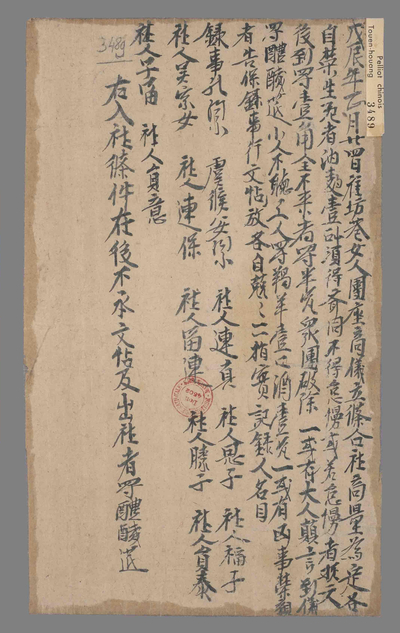 戊辰年正月廿四日旌坊巷女人團座商儀立條合社商量為定各
自榮生死者納麵壹斗須得齊同不得怠慢或若怠慢者捉文
後到罰壹角全不來者罰半瓮眾團破除一或有大人顛言到儀
罰醴膩筵小人不聽上人罰羯羊壹口酒壹瓮一或有凶事榮親
者告保錄事行文帖放各自兢〻一一指實記錄人名目
錄事孔闍梨 虞候安闍梨 社人連真 社人恩子 社人福子
社人吳家女 社人連保 社人富連 社人勝子 社人員泰
社人子富 社人員意
右入社條件在後不承文帖及出社者罰醴膩筵
3489
Pelliot chinois
Touen-houang
3489